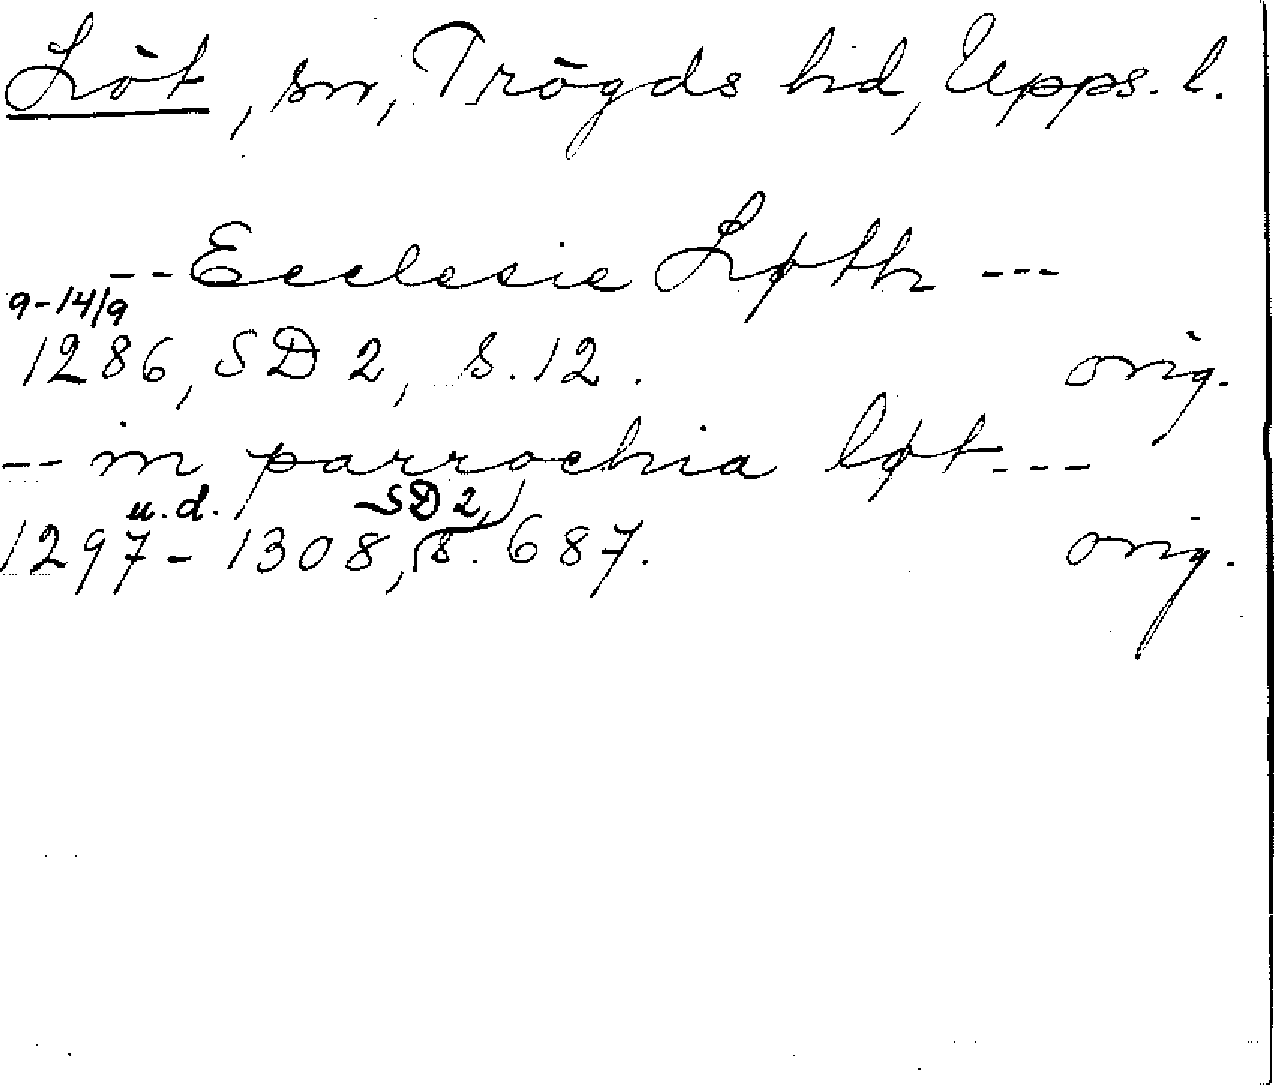 Löt, sn, Trögds hd, Upps. l.
-- Ecclesie Løth ---
9-14/9
1286, SD 2, s. 12. orig.
-- in parrochia løt ---
u.d. SD 2,
1297 - 1308, s. 687. orig.